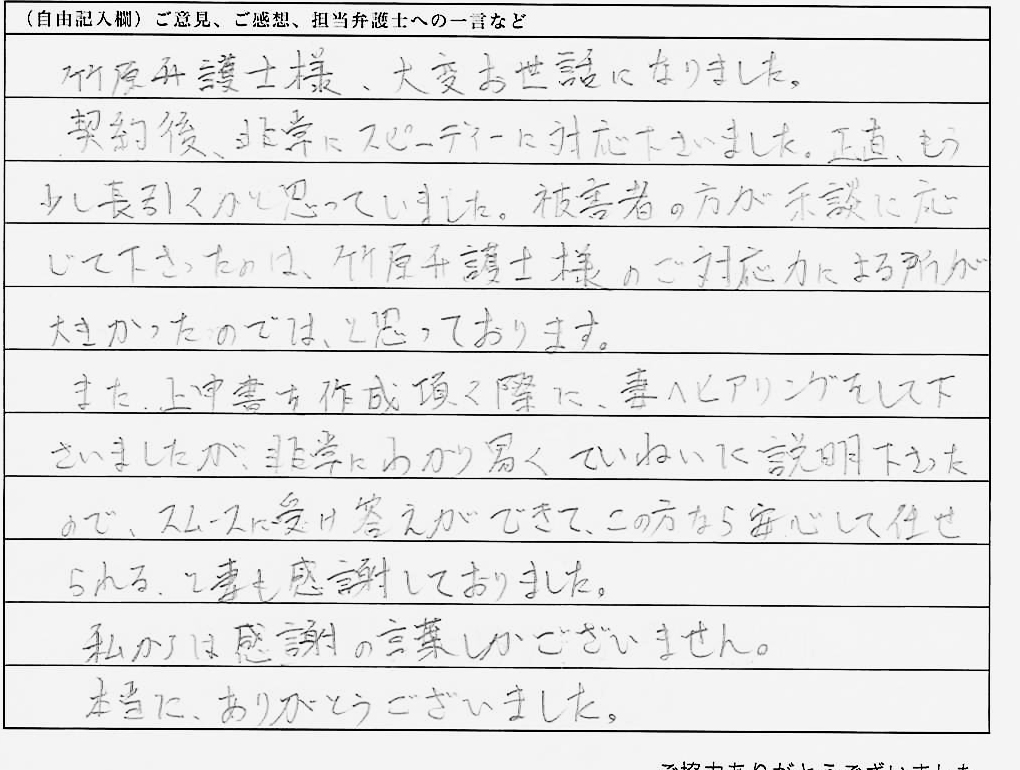 （自由記入欄）ご意見、ご感想、担当弁護士への一言など
竹原弁護士様、大変お世話になりました。
契約後、非常にスピーディーに対応下さいました。正直、もう
少し長引くかと思っていました。被害者の方が示談に応
じて下さったのは、竹原弁護士様のご対応力による所が
大きかったのでは、と思っております。
また、上申書を作成頂く際に、妻へヒアリングをして下
さいましたが、非常にわかり易くていねいに説明下さった
ので、スムースに受け答えができて、この方なら安心して任せ
られる、と妻も感謝しておりました。
私からは感謝の言葉しかございません。
本当に、ありがとうございました。